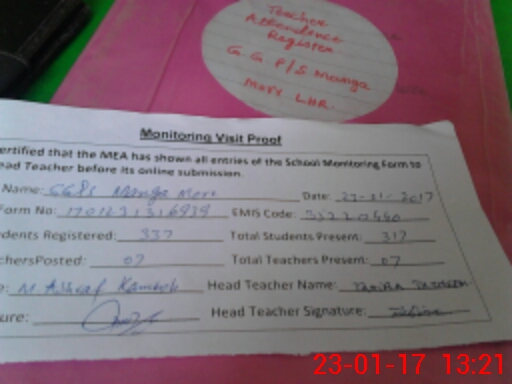 Teacher
Attendence
Register
G.G P/S Manga
Monitoring Visit Proof
ertified that the MEA has shown all entries of the School Monitoring Form to
ead Teacher before its online submission.
Name: GGPS Manga Date: 23-01-2017
Form No: EMIS Code:
dents Registered: 337 Total Students Present: 317
chersPosted: 07 Total Teachers Present: 07
M Ashraf Head Teacher Name:
ure: Head Teacher Signature:
23-01-17 13:21